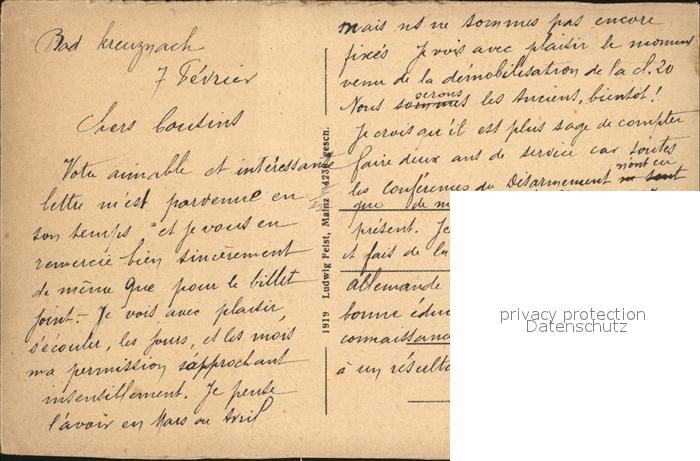 Bad Kreuznach
7 Février
Chers Cousins
Votre aimable et intéressante
lettre m'est parvenue en
son temps et je vous en
remercie bien sincèrement
de même que pour le billet
joint. - Je vois avec plaisir,
s'écouler, les jours, et les mois
ma permission s'approchant
insensiblement. Je pense
l'avoir en Mars ou Avril
1919 Ludwig Feist, Mainz 423 gesch.
mais ns ne sommes pas encore
fixés Je vois avec plaisir le moment
venu de la démobilisation de la cl. 20
Nous serons les Anciens, bientôt!
Je crois qu'il est plus sage de compter
faire deux ans de service car toutes
les Conférences du Désarmement n'ont eu
que de
présent. Je
et fais de la
allemande
bonne
à un
privacy protection
Datenschutz